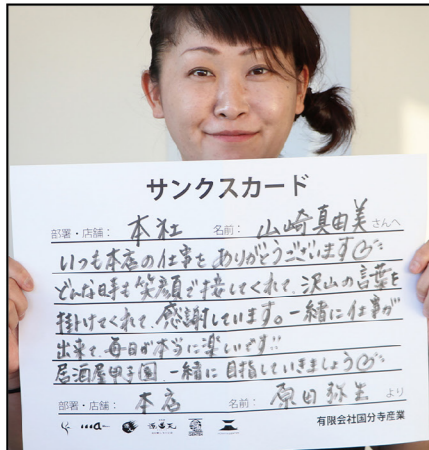 サンクスカード
部署・店舗： 本社 名前： 山崎真由美 さんへ
いつも本店の仕事をありがとうございます
どんな時も笑顔で接してくれて、沢山の言葉を
掛けてくれて、感謝しています。一緒に仕事が
出来て、毎日が本当に楽しいです!!
居酒屋甲子園、一緒に目指していきましょう
部署・店舗： 本店 名前： 原田弥生 より
有限会社国分寺産業